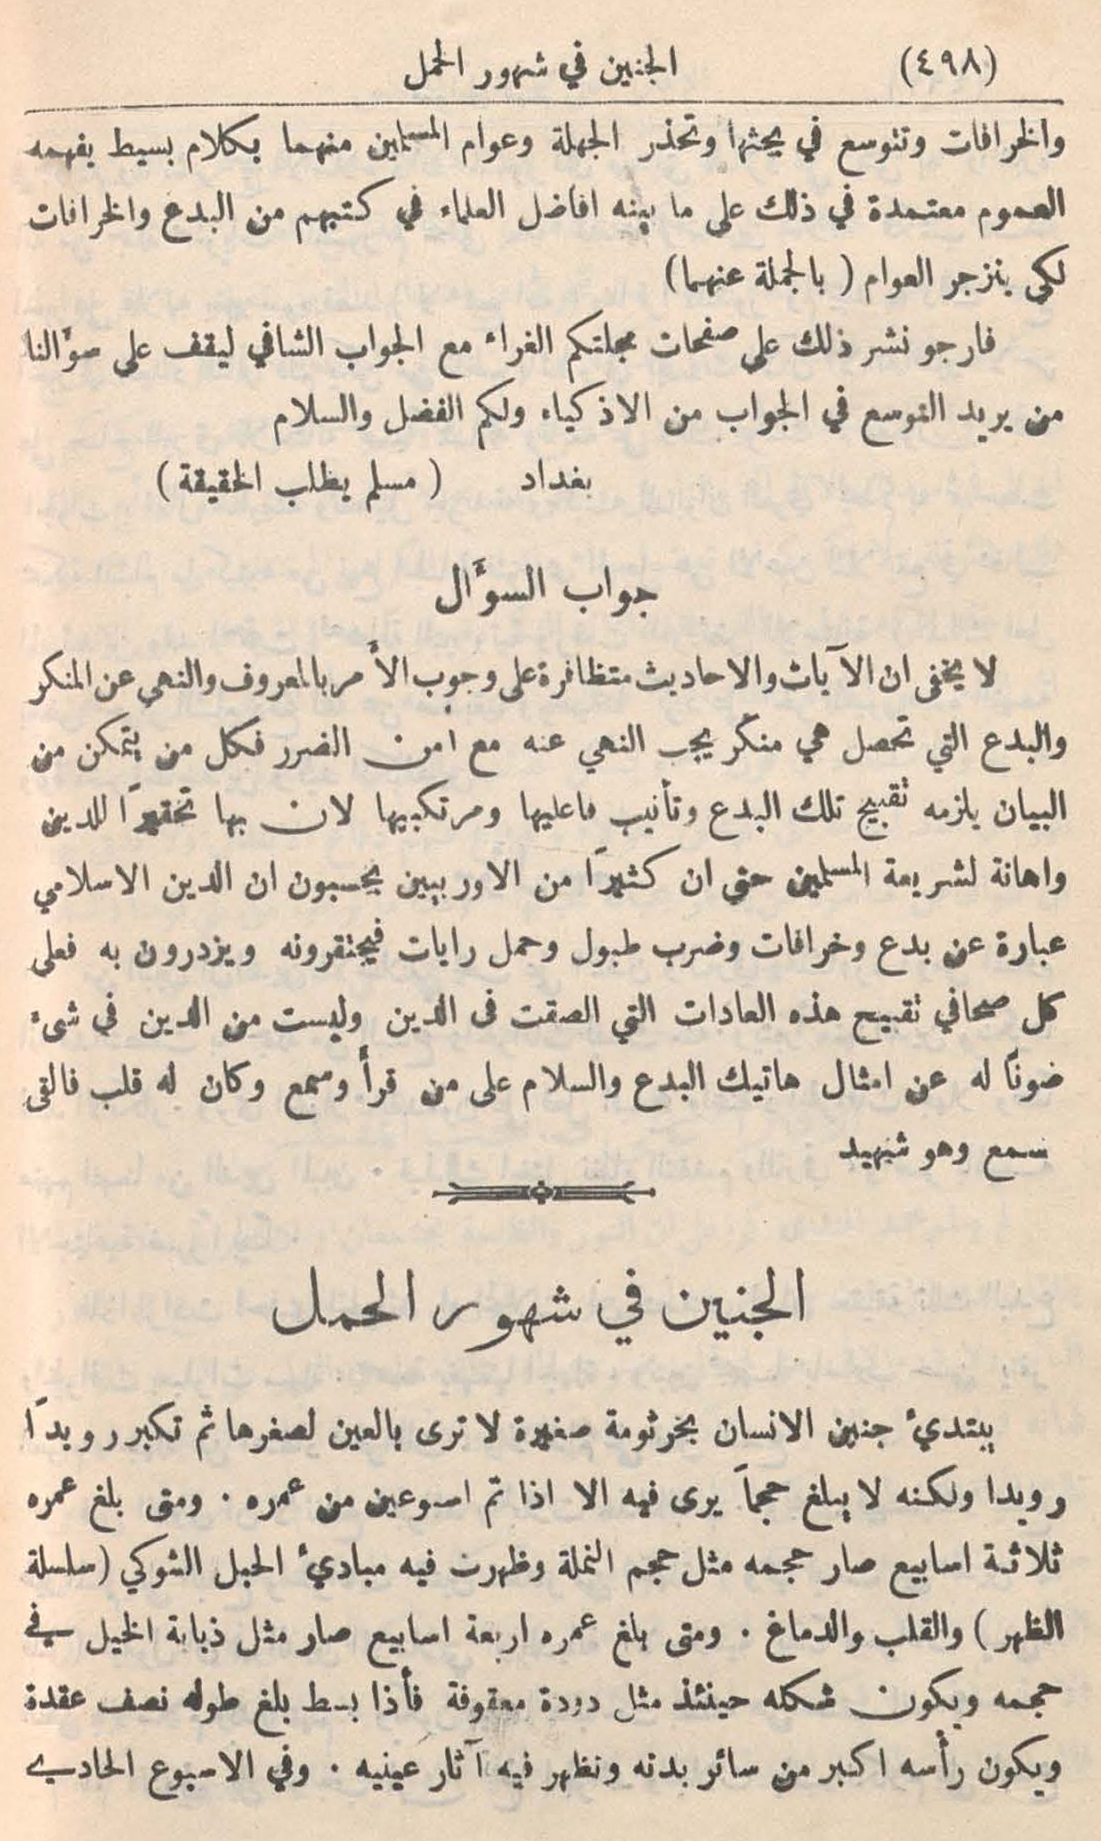 (٤٩٨) الجنين في شهور الحمل
والخرافات وتتوسع في بحثها وتحذر الجهلة وعوام المسلمين منهما بكلام بسيط يفهمه
العموم معتمدة في ذلك على ما بينه افاضل العلماء في كتبهم من البدع والخرافات
لكي ينزجر العوام ( بالجملة عنهما)
فارجو نشر ذلك على صفحات مجلتكم الغراء مع الجواب الشافي ليقف على سؤالنا
من يريد التوسع في الجواب من الاذكياء ولكم الفضل والسلام
بغداد ( مسلم يطلب الحقيقة )
جواب السؤَال
لا يخفى ان الآيات والاحاديث متظافرة على وجوب الأَمر بالمعروف والنهي عن المنكر
والبدع التي تحصل هي منكر يجب النهي عنه مع امن الضرر فكل من يتمكن من
البيان يلزمه تقبيح تلك البدع وتأنيب فاعليها ومرتكبيها لان بها تحقيرًا للدين
واهانة لشريعة المسلمين حتى ان كثيرًا من الاوربيين يحسبون ان الدين الاسلامي
عبارة عن بدع وخرافات وضرب طبول وحمل رايات فيحتقرونه ويزدرون به فعلى
كل صحافي تقبيح هذه العادات التي الصقت في الدين وليست من الدين في شيء
ضونًا له عن امثال هاتيك البدع والسلام على من قرأَ وسمع وكان له قلب فالقى
سمع وهو شهيد
الجنين في شهور الحمل
يبتدىء جنين الانسان بخرثومة صغيرة لا ترى بالعين لصغرها ثم تكبر رويدًا
رويدا ولكنه لا يبلغ حجماً يرى فيه الا اذا تم اسوعين من عمره ٠ ومتى بلغ عمره
ثلاثة اسابيع صار حجمه مثل حجم النملة وظهرت فيه مبادىء الحبل الشوكي (سلسلة
الظهر ) والقلب والدماغ ٠ ومتى بلغ عمره اربعة اسابيع صار مثل ذبابة الخيل في
حجمه ويكون شكله حينئذ مثل دودة معقوفة فأذا بسط بلغ طوله نصف عقدة
ويكون رأسه اكبر من سائر بدنه ونظهر فيه آثار عينيه ٠ وفي الاسبوع الحادي